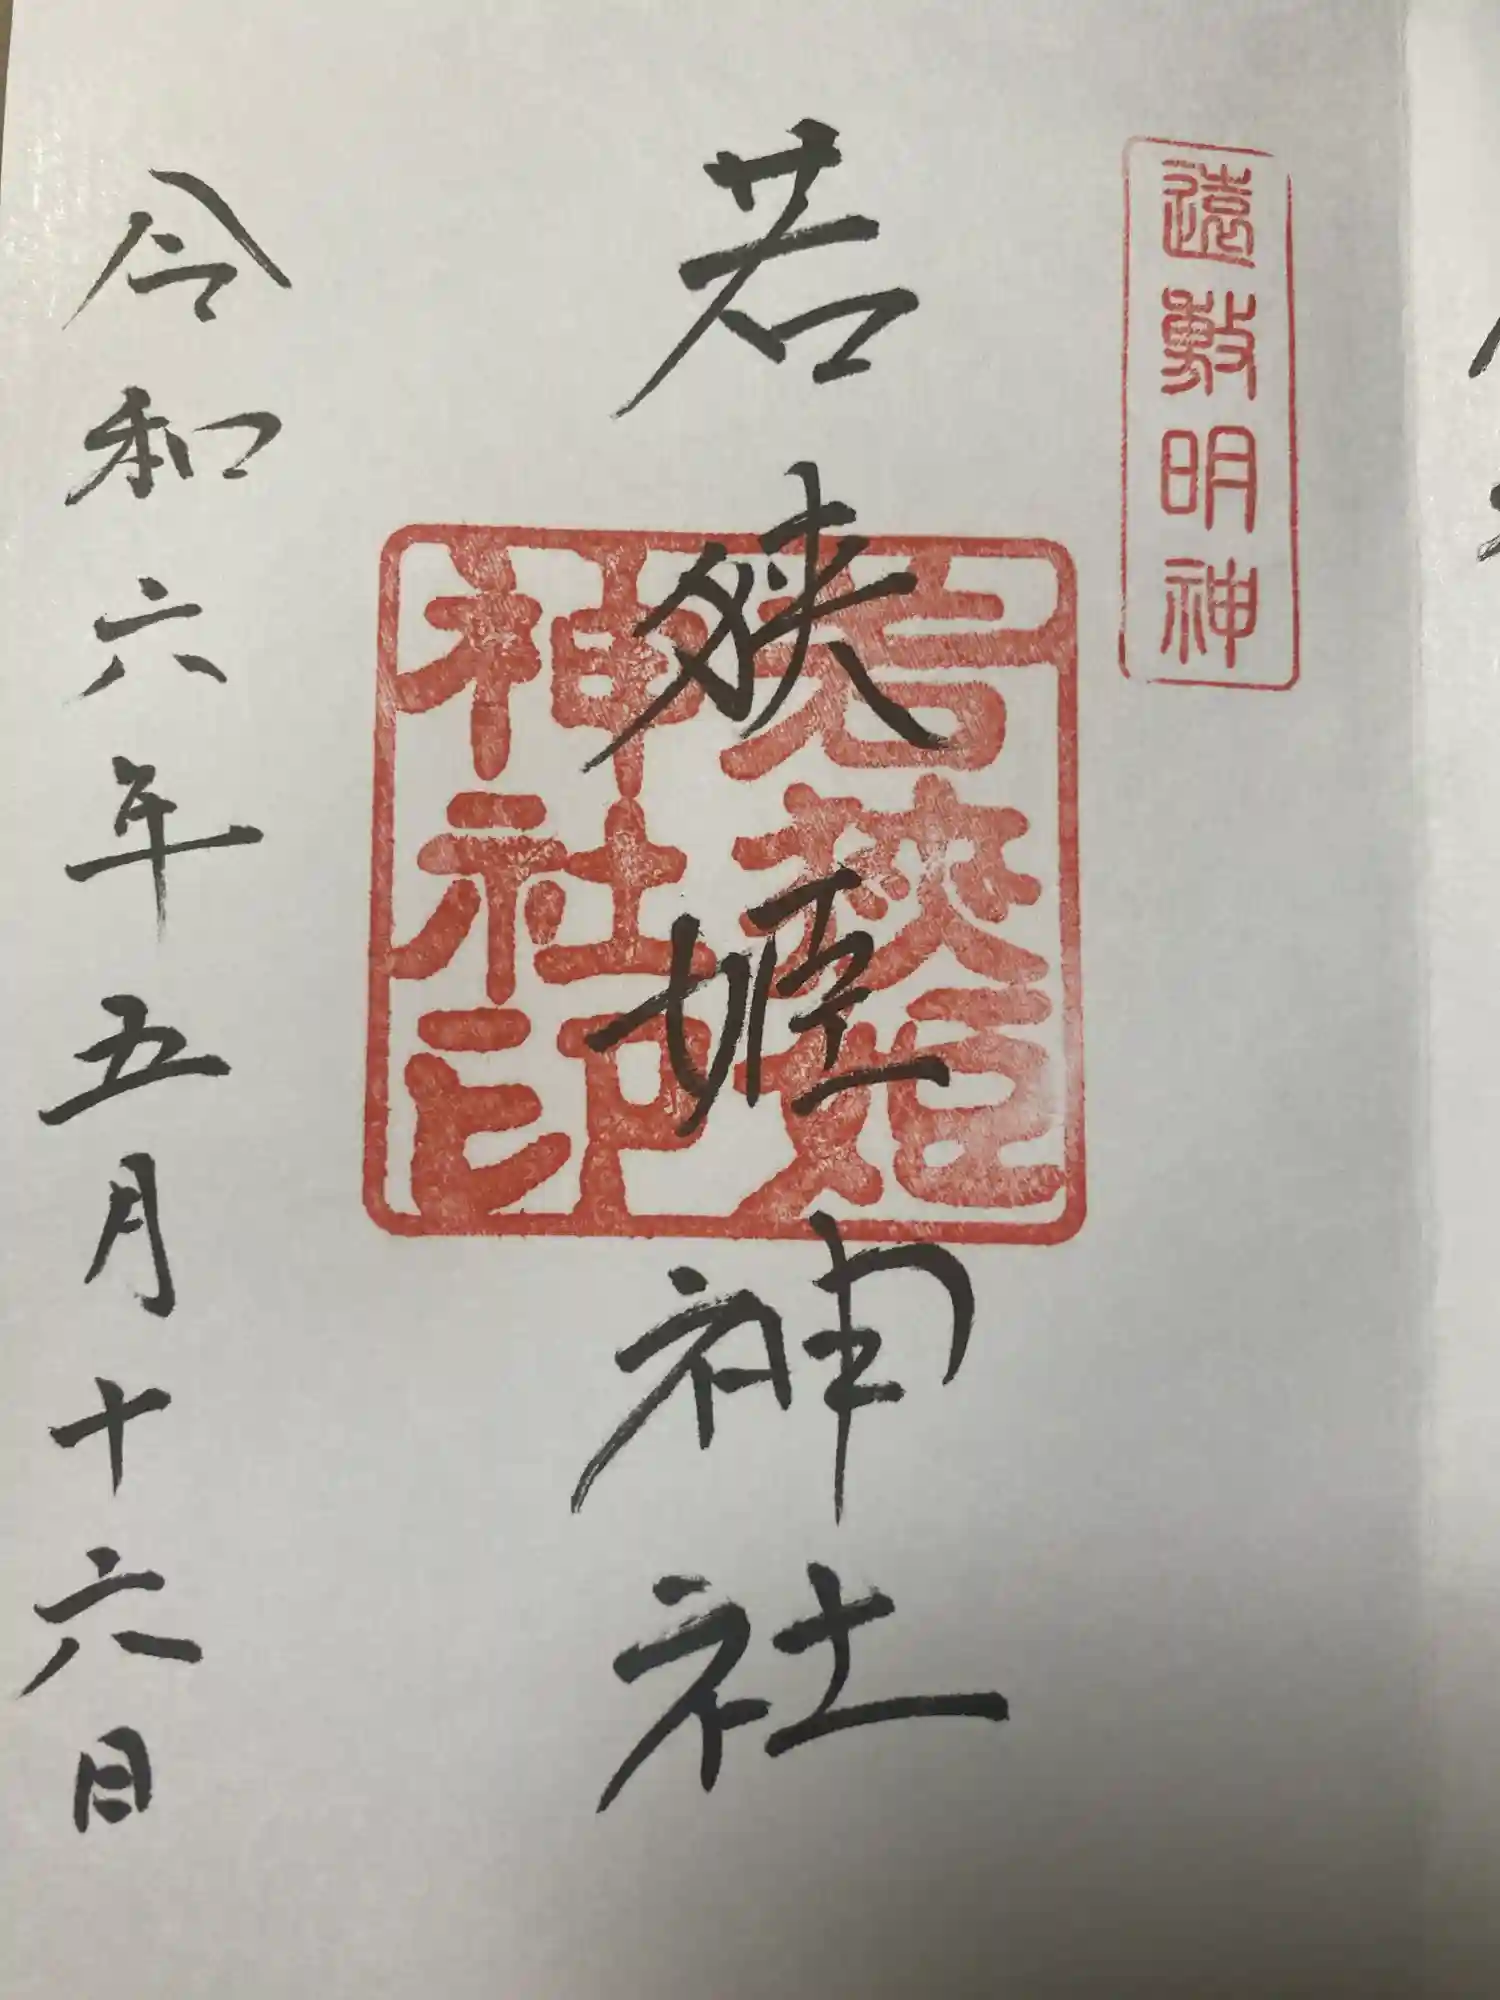 遠敷明神
若狭姫神社
若狭姫
神社印
令和六年五月十六日